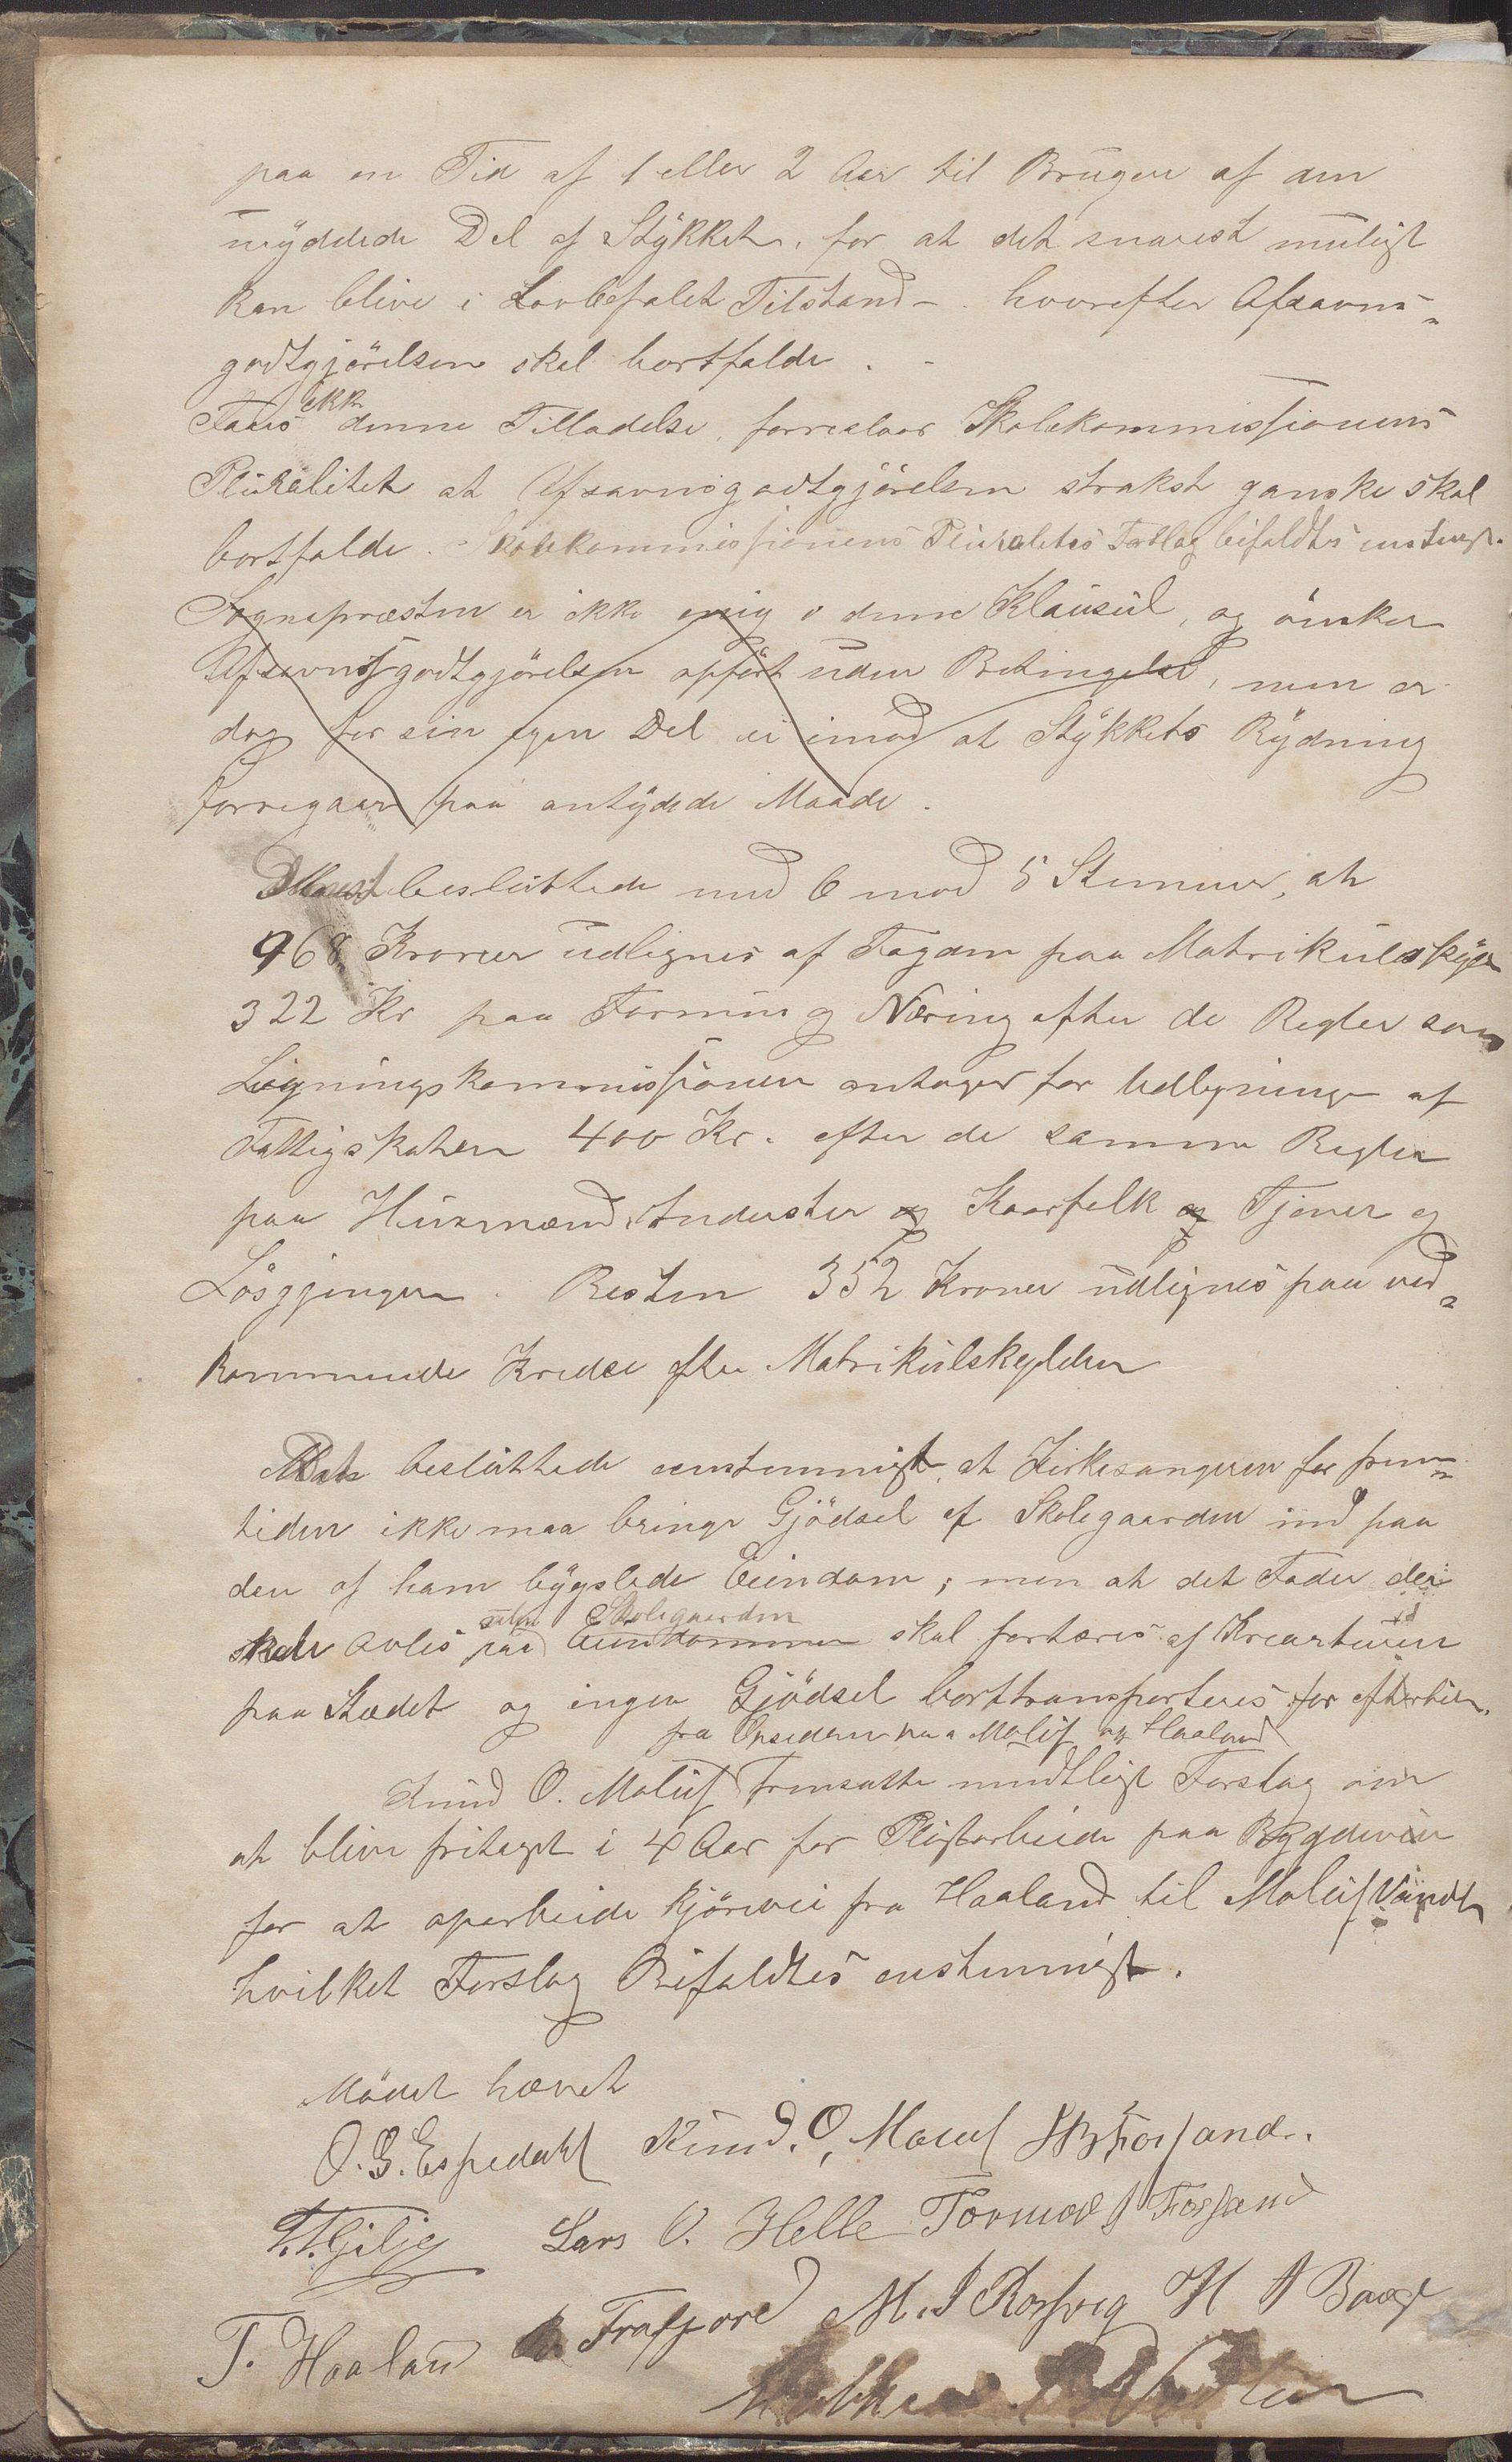 paa en Tid af 1 eller 2 Aar til Brugen af den
uryddede Del af Stykket, for at det snarest muligt
kan blive i Lovbefalet Tilstand – hvorefter Afsavns-
godtgjörelsen skal bortfalde. –
Faaes ikke denne Tilladelse, foreslaar Skolekommissionens
Pluralitet at Afsavnsgodtgjörelsen strakst ganske skal
bortfalde. Skolekommissionens Pluralitets Forslag bifaldtes enstemg.
Sognepræsten er ikke enig i denne Klausul, og önsker
Afsavnsgodtgjörelsen opfört uden Betingelse, men er
dog for sin egen Del ei imod at Stykkets Rydning
forregaar paa antydede Maade.
besluttede med 6 mod 5 Stemmer, at
968 Kroner udlignes af Fogden paa Matrikulskyld
322 Kr paa Formue og Næring efter de Regler som
Ligningskommissionen antager for Udligning af
Fattigskatten 400 Kr. efter de samme Regler
paa Husmænd, Inderster og Kaarfolk og Tjener og
Lösgjenger. Resten 352 Kroner udlignes paa ved-
kommende Kredse efter Matrikulskylden
besluttede enstemmigt, at Kirkesangeren for frem-
tiden ikke maa bringe Gjödsel af Skolegaarden ind paa
den af ham bygslede Eiendom; men at det Foder der
avles paa Skolegaarden
Eiendommen skal fortæres af Kreaturer
paa Stedet og ingen Gjödsel borttransporteres for eftertiden.
fra Opsidderne paa Meluf og Haaland
Knud O. Meluf Fremsatte mundtligt Forslag om
at blive fritaget i 4 Aar for Pligtarbeide paa Bygdeveien
for at oparbeide kjörevei fra Haaland til Meluf Vandet
hvilket Forslag Bifaldtes enstemmigt.
Mödet hævet
O. G. Espedahl Knud. O, Meluf Forsand.
T. T. Gilje Lars O. Helle Tormod Forsand
T. Haaland Frafjord M. J Rossvig H Bærge